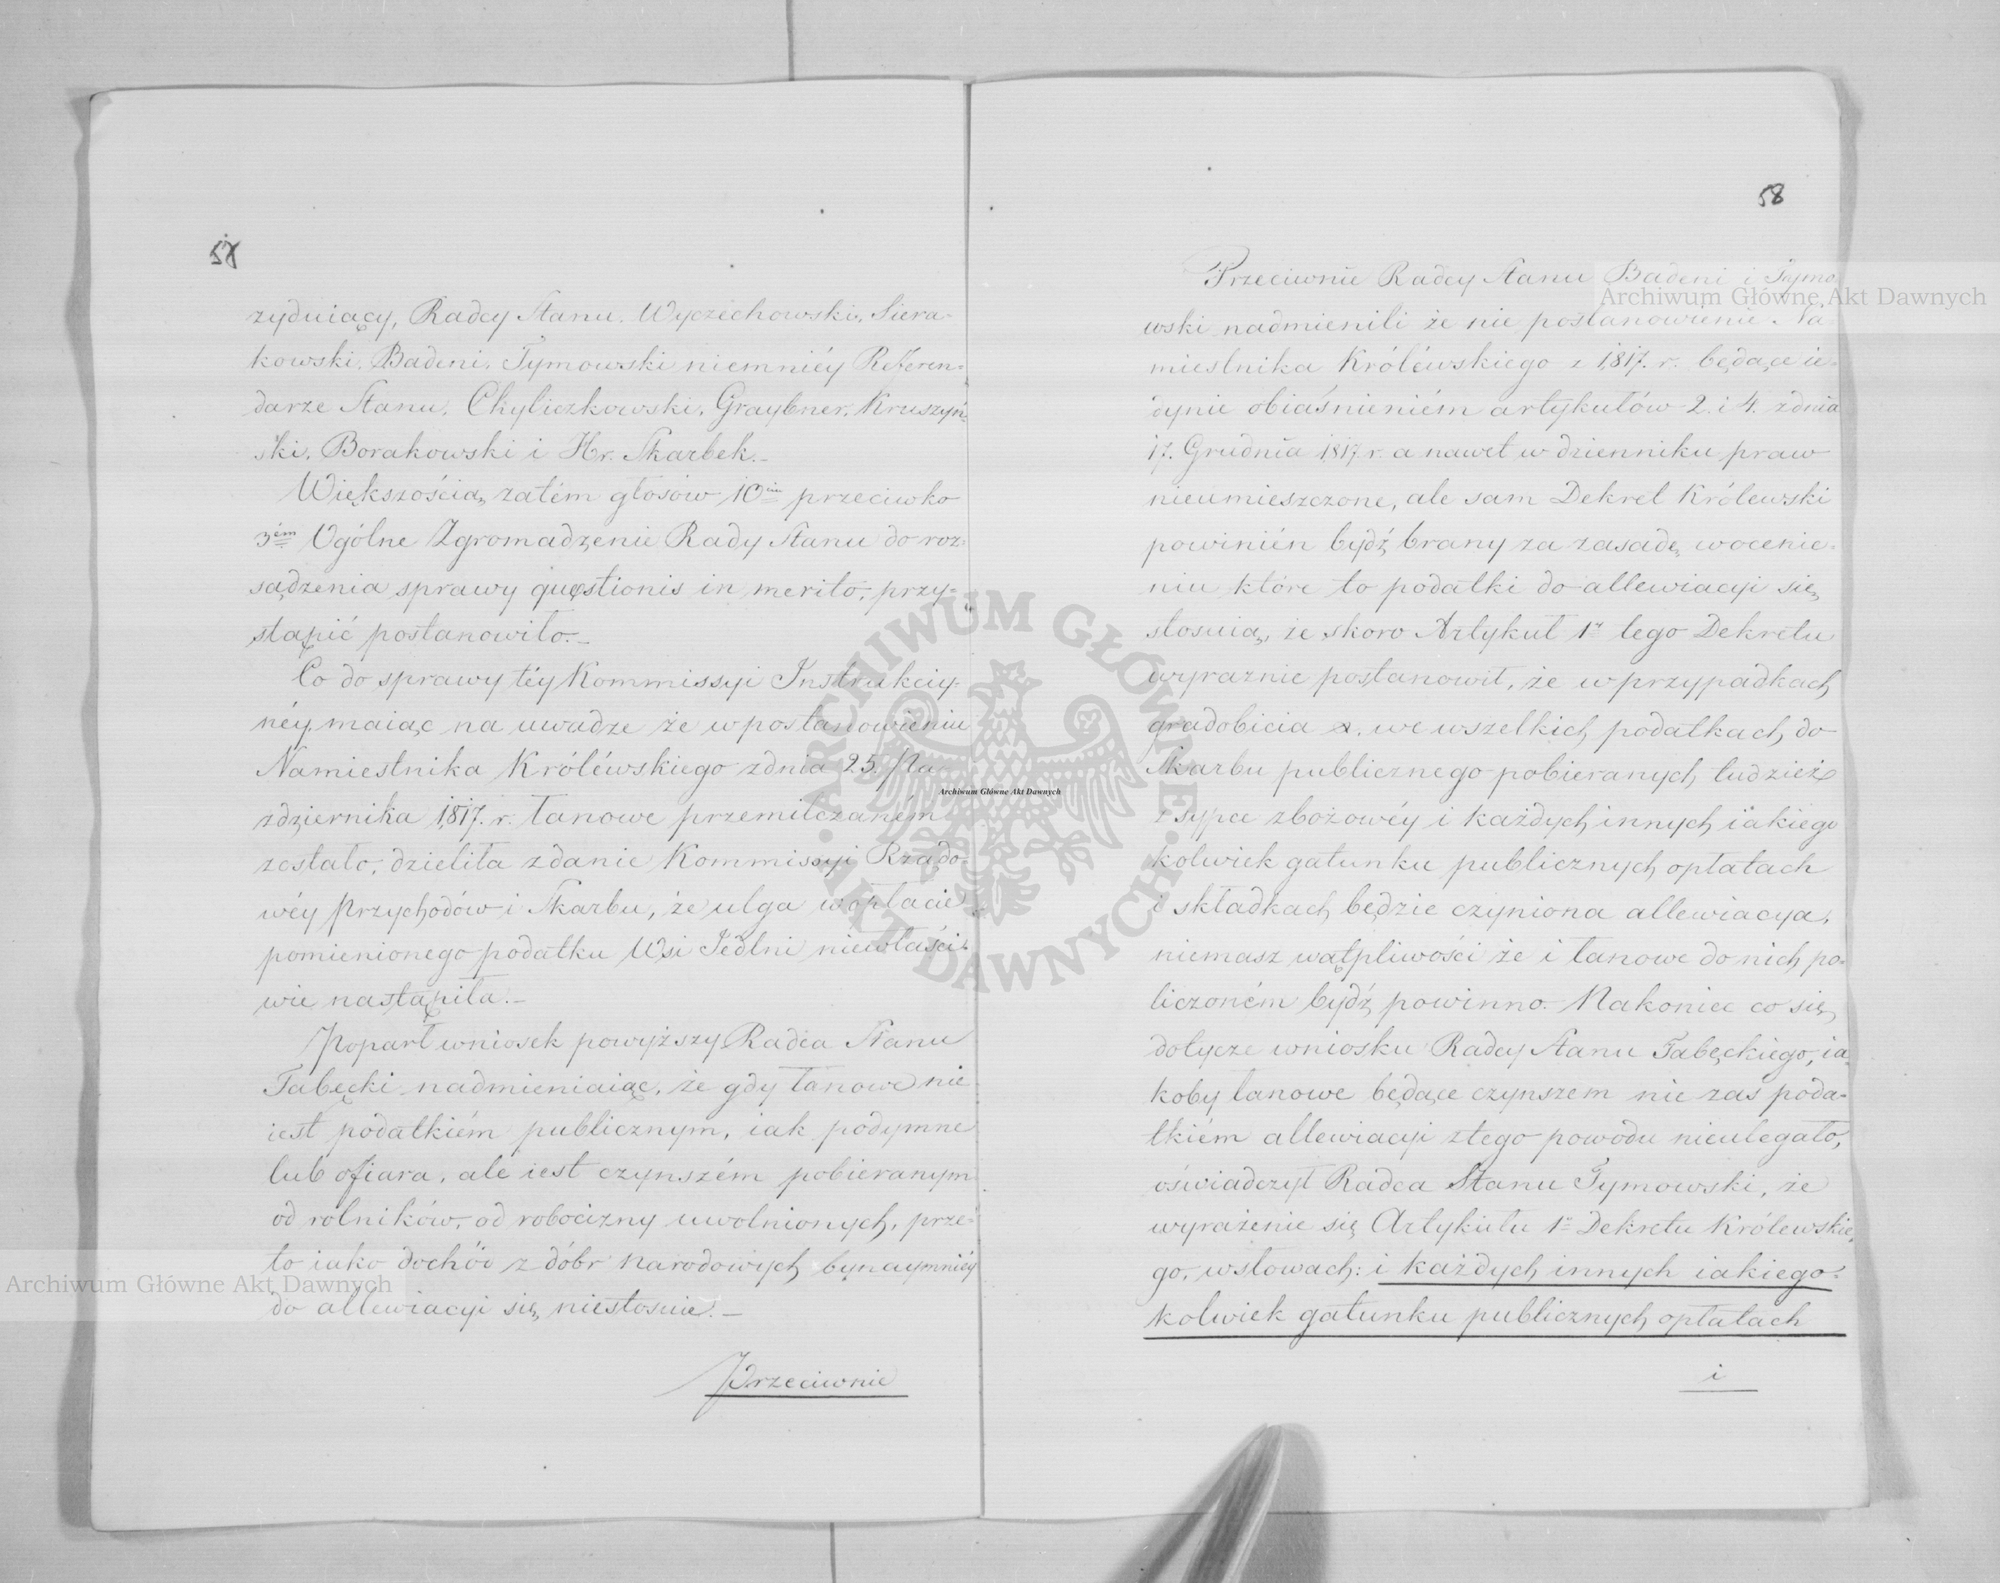 57
zyduiący, Radcy Stanu. Wyczechowski, Siera-
kowski, Badeni, Tymowski niemniéy Referen-
darze Stanu, Chyliczkowski, Graybner, Kruszyń-
ski, Borakowski i Hr. Skarbek.-
Większością zatém głosów 10im przeciwko
3ém Ogólne Zgromadzenie Rady Stanu do roz-
sądzenia sprawy questionis in merito, przy-
stąpić postanowiło.-
Co do sprawy téy Kommissyi Instrukcyi-
néy, maiąc na uwadze że w postanowieniu
Namiestnika Królewskiego z dnia 25. Pa-
ździernika 1817. r. łanowe przemilczaném
zostało, dzieliła zdanie Kommissyi Rządo-
wéy Przychodów i Skarbu, że ulga w opłacie
pomienionego podatku Wsi Jedlni niewłaści-
wie nastąpiła.-
Poparł wniosek powyższy Radca Stanu
Tabęcki nadmieniaiąc, że gdy łanowe nie
iest podatkiém publicznym, iak podymne
lub ofiara, ale iest czynszém pobieranym
od rolników, od robocizny uwolnionych, prze-
to iako dochód z dóbr Narodowych bynaymniéy
do allewiacyi się niestosuie.-
Przeciwnie
58
Przeciwnie Radcy Stanu Badeni i Tymo-
wski nadmienili że nie postanowienie Na-
miestnika Króléwskiego z 1817. r. będące ie-
dynie obiaśnieniém artykułów 2. i 4. z dnia
17. Grudnia 1817 r. a nawet w dzienniku praw
nieumieszczone, ale sam Dekret Królewski
powinién bydź brany za zasadę w ocenie-
niu które to podatki do allewiacyi się
stosuią, że skoro Artykuł 1y tego Dekretu
wyraznie postanowił, że w przypadkach
gradobicia &. we wszelkich podatkach do
Skarbu publicznego pobieranych tudzież
zsypce zbożowéy i każdych innych iakiego
kolwiek gatunku publicznych opłatach
i składkach będzie czyniona allewiacya,
niemasz wątpliwości że i łanowe do nich po-
liczoném bydź powinno. Nakoniec co się
dotycze wniosku Radcy Stanu Tabęckiego, ia-
koby łanowe będące czynszem nie zas poda-
tkiém allewiacyi z tego powodu nieulegało,
oświadczył Radca Stanu Tymowski, że
wyrażenie się Artykułu 1o Dekretu Królewskie-
go, w słowach: i każdych innych iakiego-
kolwiek gatunku publicznych opłatach
i
Archiwum Główne Akt Dawnych
Archiwum Główne Akt Dawnych
Archiwum Główne Akt Dawnych
ARCHIWUM GŁÓWNE
AKT DAWNYCH